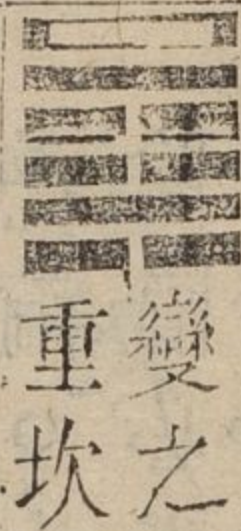 變之
重坎